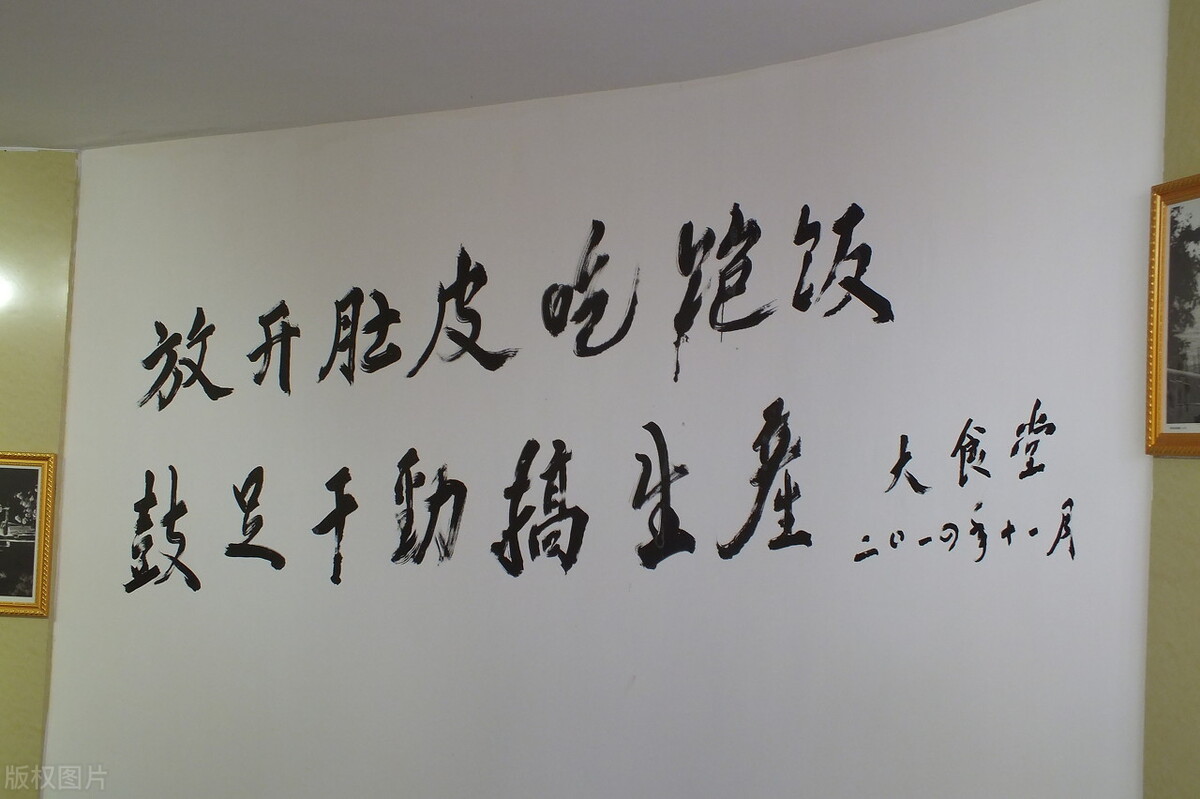 放开肚皮吃跑饭
鼓足干勁搞生産
大食堂
二〇一四年十一月
版权图片